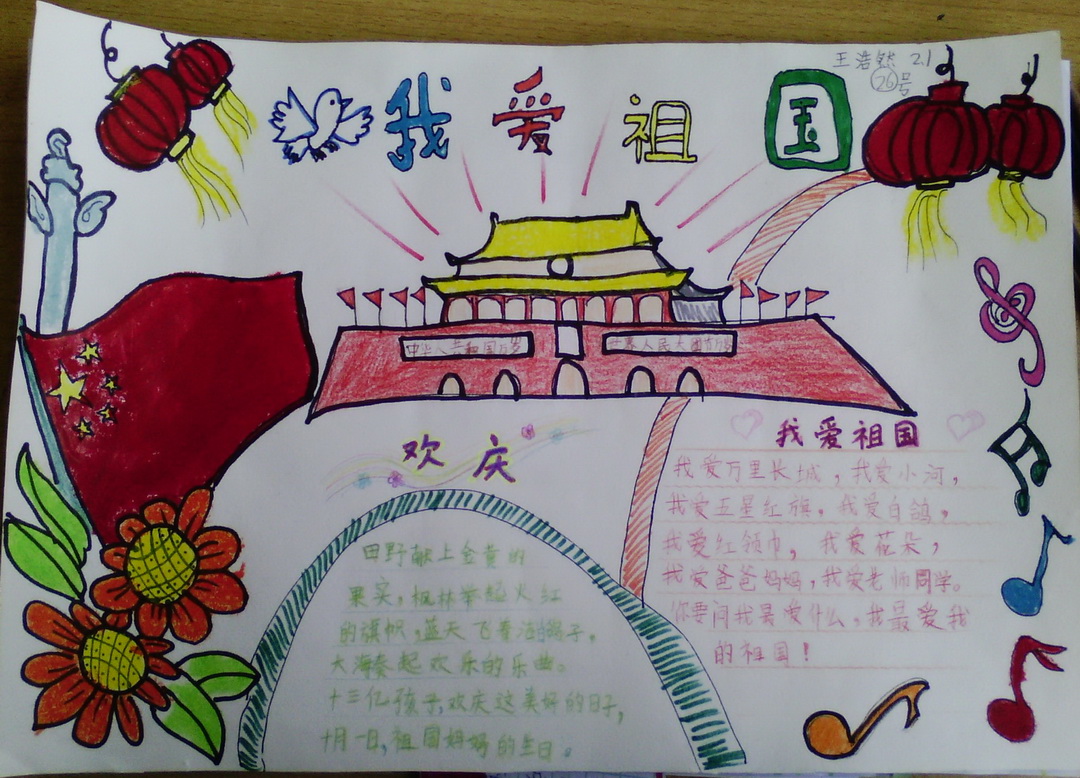 王浩然 2.1
26号
我爱祖国
中华人共和国万岁
世界人民大团节万岁
欢庆
田野献上金黄的
果实，枫林举起火红
的旗帜，蓝天飞着洁鸽子，
大海奏起欢乐的乐曲。
十三亿孩子，欢庆这美好的日子，
十月一日，祖国妈妈的生日。
我爱祖国
我爱万里长城，我爱小河，
我爱五星红旗，我爱白鸽，
我爱红领巾，我爱花朵，
我爱爸爸妈妈，我爱老师同学。
你要问我最爱什么，我最爱我
的祖国！